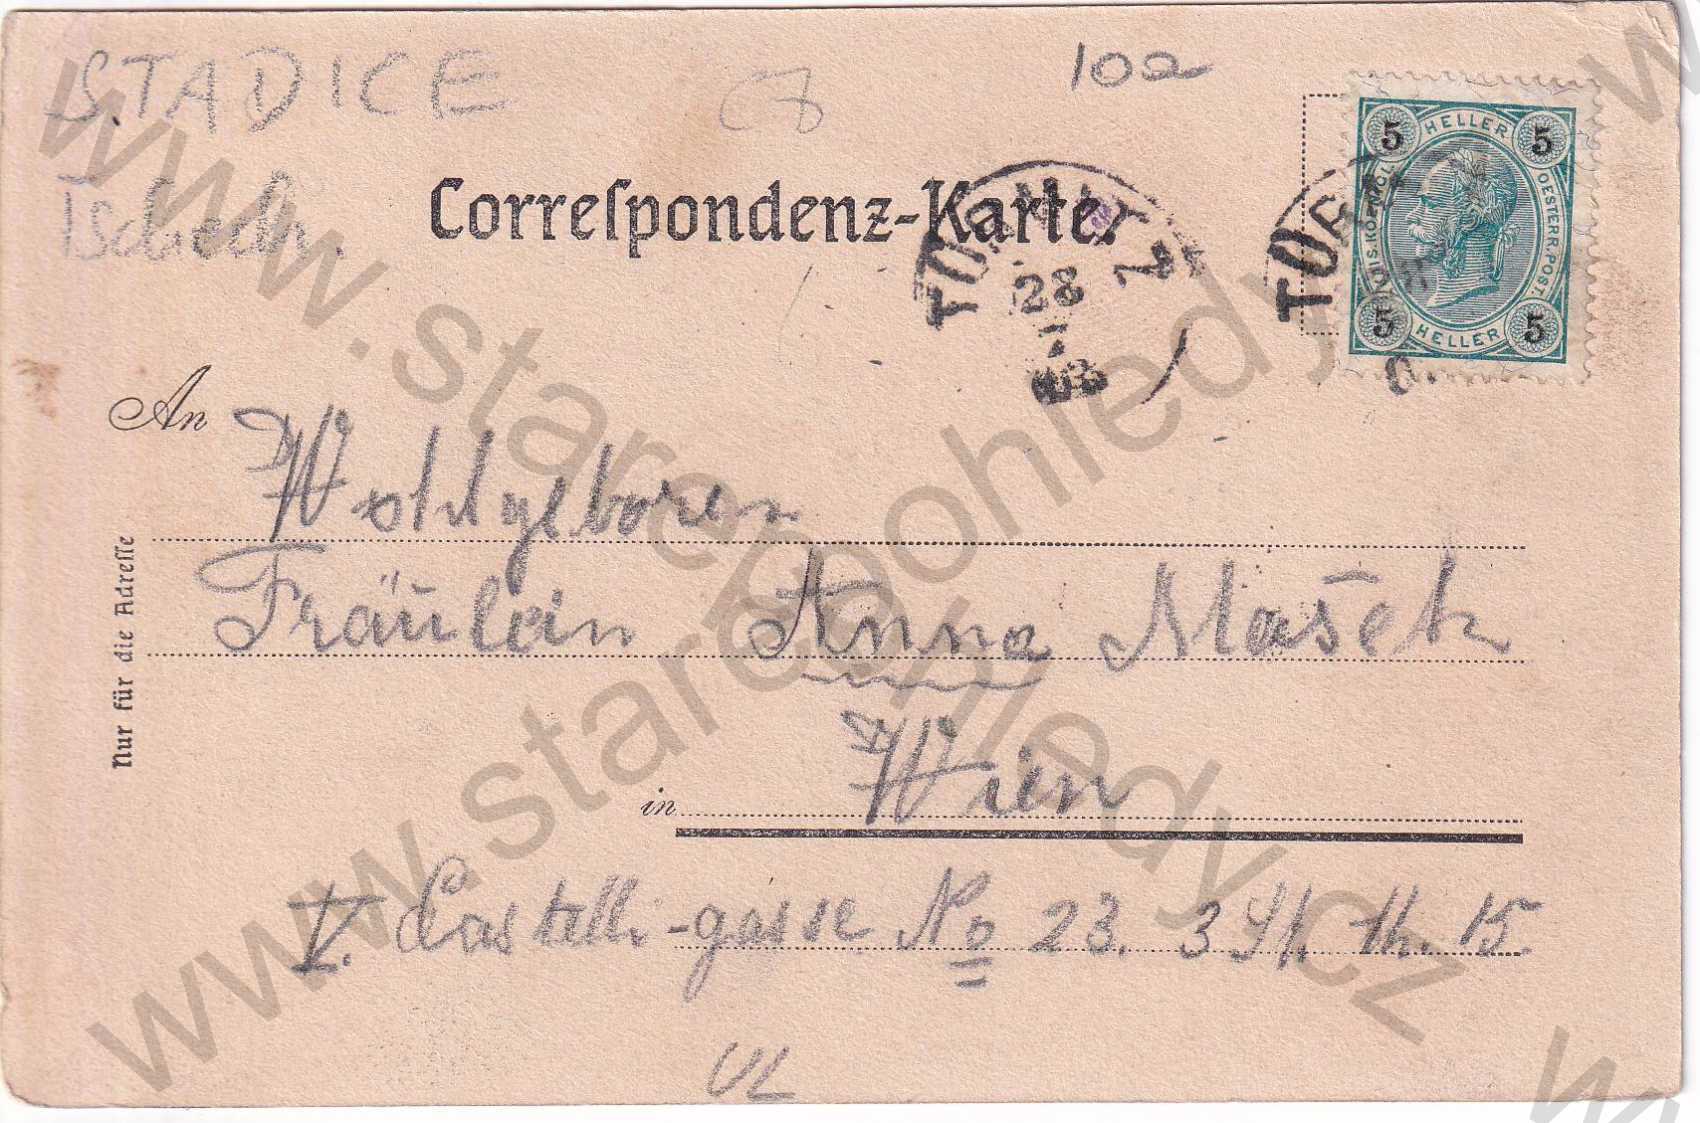 STADICE
10a
Tschech.
Correspondenz-Karte.
28
5 HELLER 5
OESTERR. POST.
5 HELLER 5
An
Wohlgeboren
Fräulein Anna Mašek
in Wien
V. Castelli-gasse No 23. 3 St. Th. 15.
Nur für die Adresse
UL
www.starepohledy.cz
www.starepohledy.cz